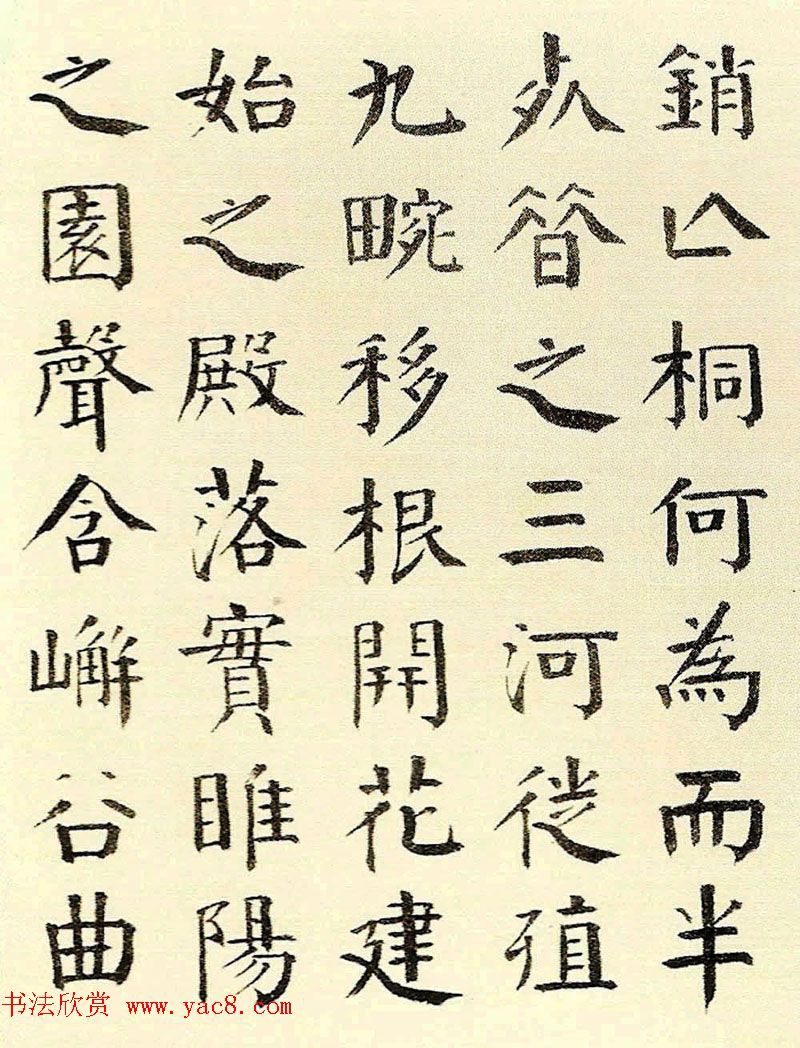 銷亡桐何為而半
死昔之三河徙殖
九畹移根開花建
始之殿落實睢陽
之園聲含嶰谷曲
书法欣赏 www.yac8.com